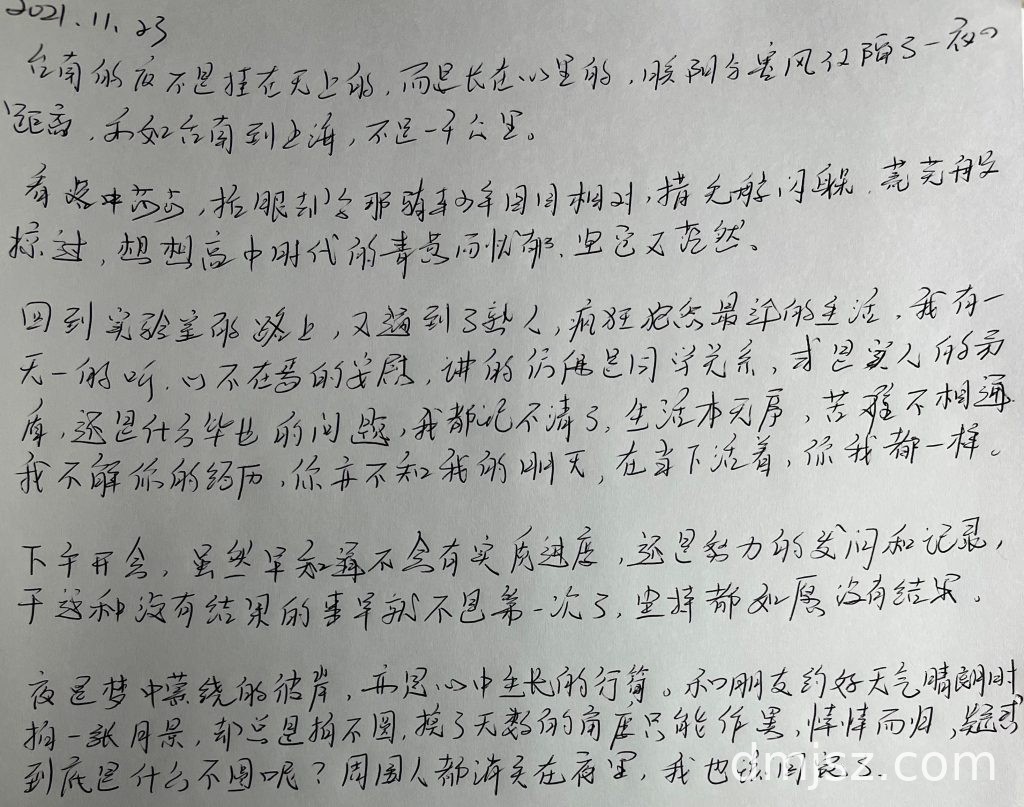 2021.11.23
台南的夜不是挂在天上的,而是长在心里的,暖阳与寒风仅隔了一夜的
距离,不如台南到上海,不足一千公里。
看 中 ,抬眼却与那骑车少年目目相对,措无 闪躲,
掠过,想想高中时代的青 而 ,但已又茫然。
回到实验室的路上,又遇到了熟人,疯狂抱怨最近的生活,我有一
无一的听,心不在焉的安慰,讲的 是同学关系,或是实人的
,还是什么毕业的问题,我都记不清了,生活本无序,苦难不相通
我不解你的经历,你亦不知我的明天,在当下活着,你我都一样。
下午开会,虽然早知道不会有实质进度,还是努力的发问和记录,
干这种没有结果的事早就不是第一次了,坚持都如愿没有结果。
夜是梦中萦绕的彼岸,亦是心中生长的行 。和朋友约好天气晴朗时
拍一张月景,却总是拍不圆,换了无数的角度只能作罢,悻悻而归,
到底是什么不圆呢?周围人都消失在夜里,我也该回 了.
dmjsz.com